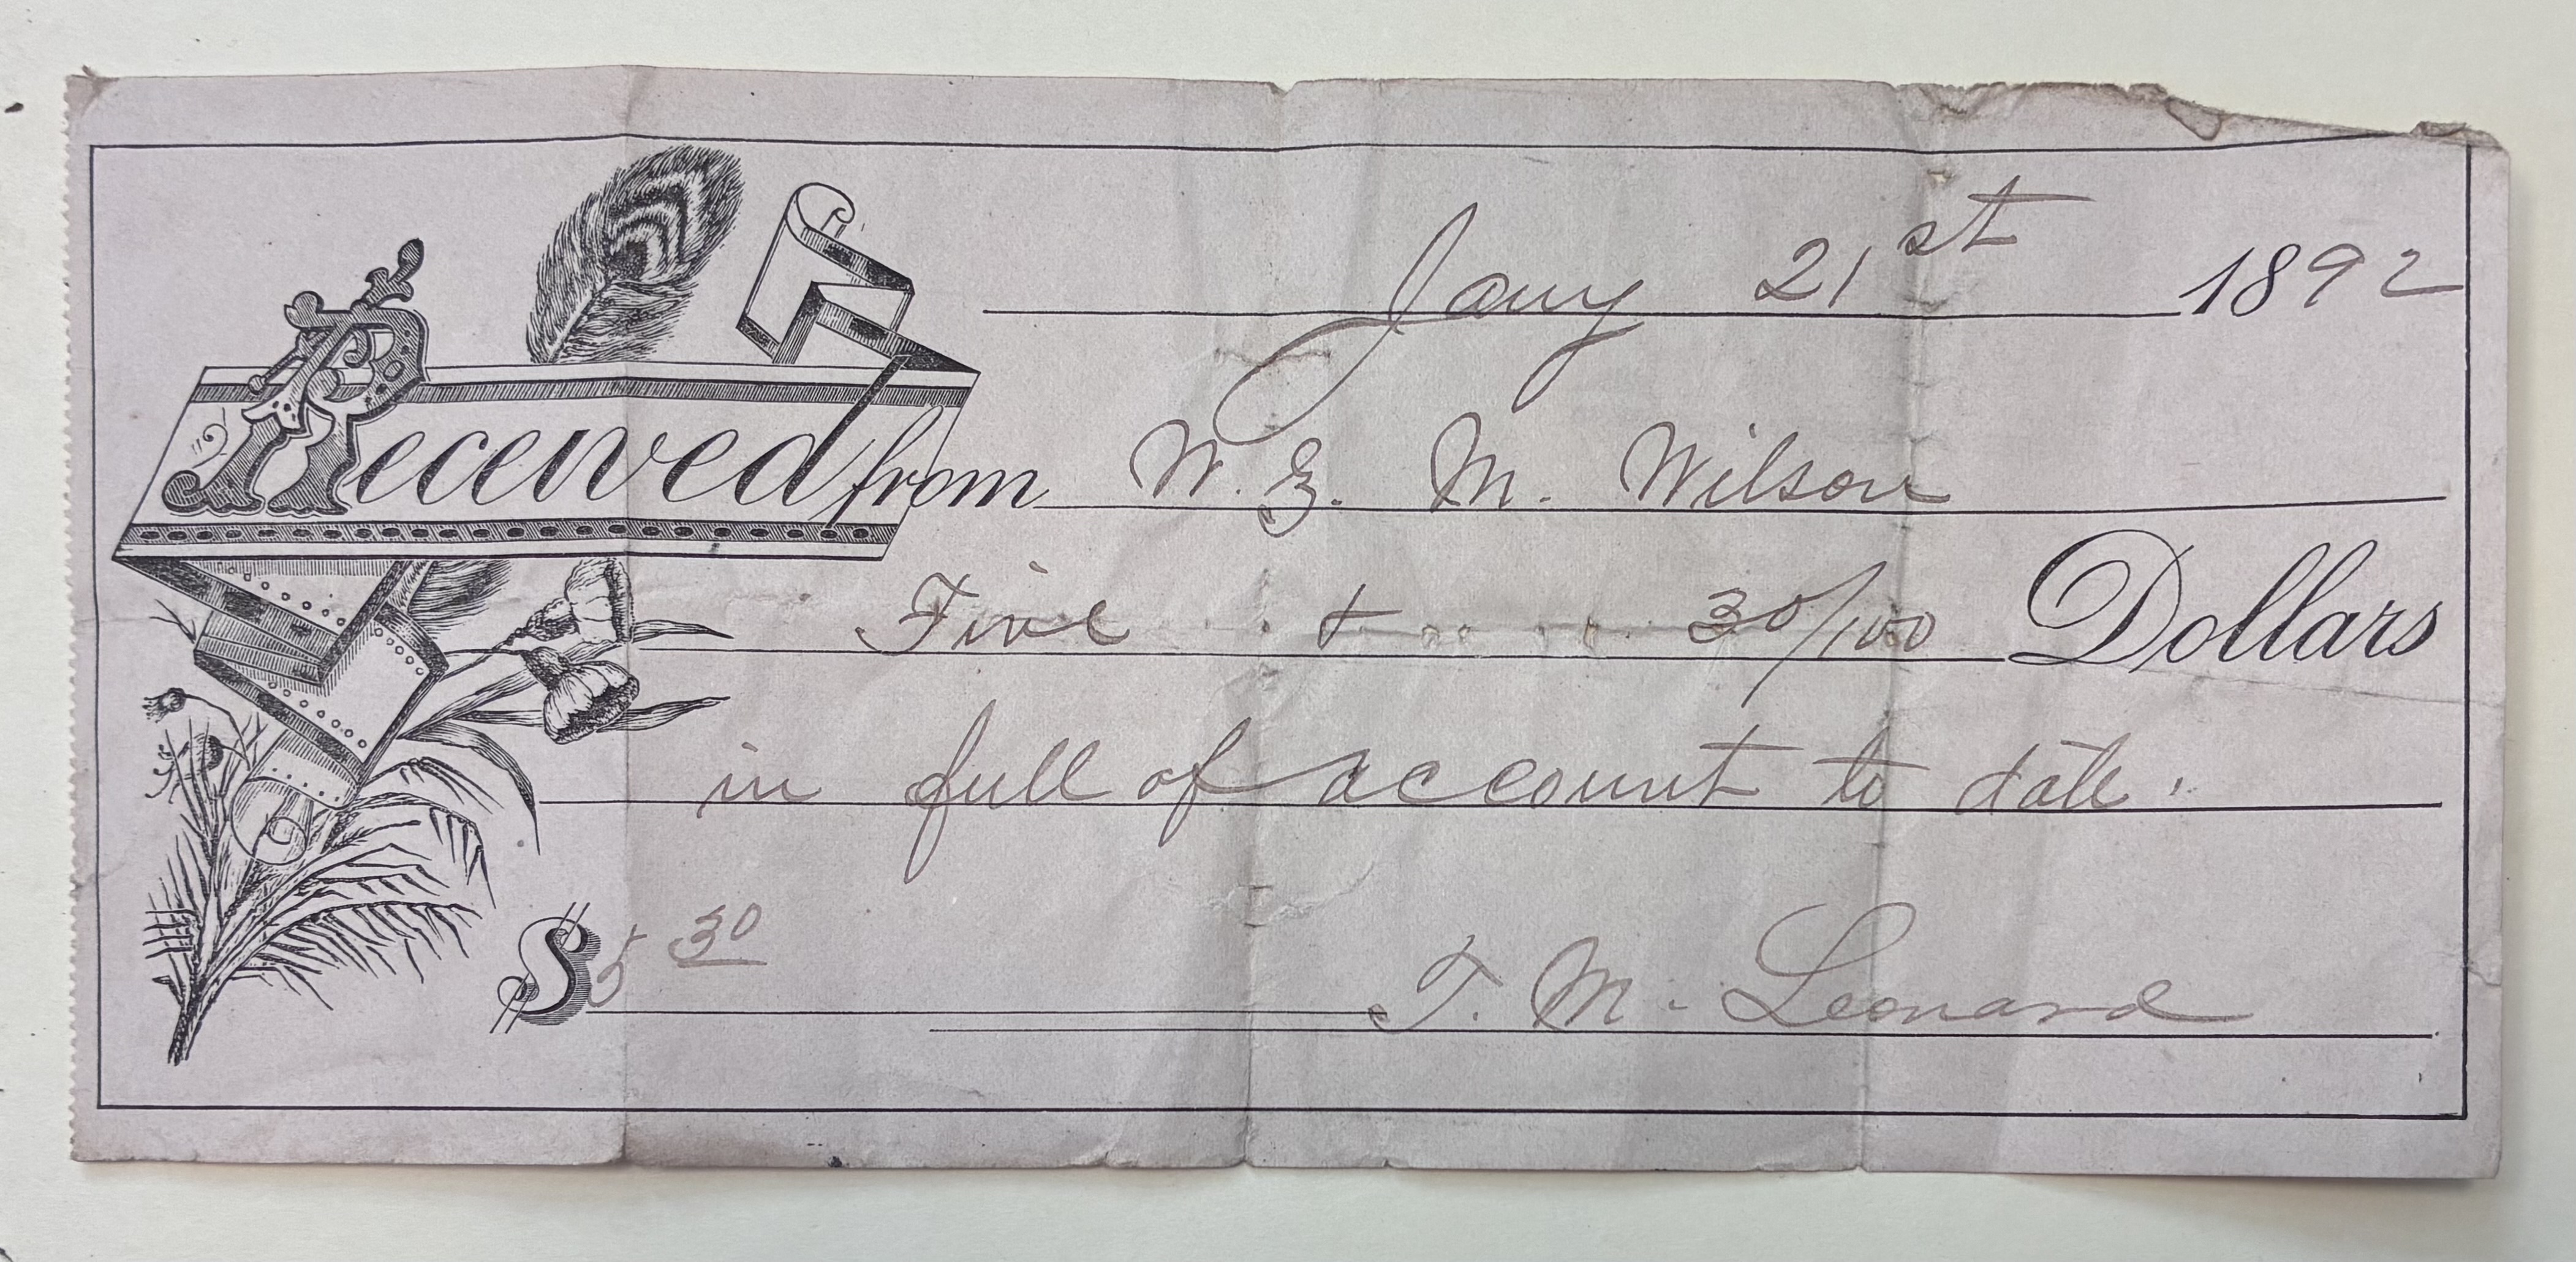 Jany 21st 1892
Received from W. Z. M. Wilson
Five & 30/100 Dollars
in full of account to date.
$5 30
T. M. Leonard